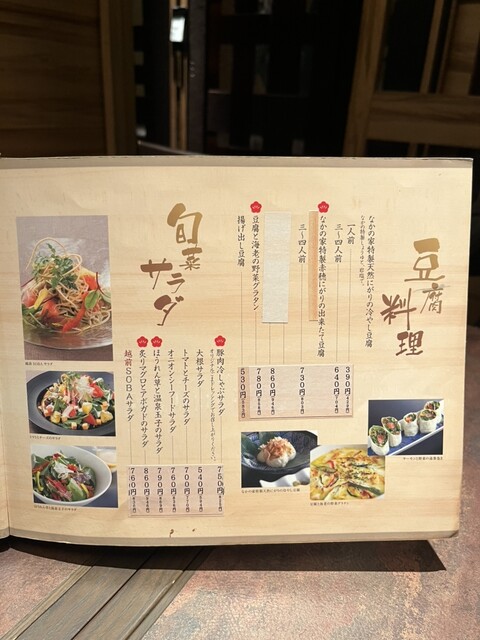 豆腐料理
なかの家特製天然にがりの冷やし豆腐
一人前
390円
三〜四人前
640円
なかの家特製赤穂にがりの出来たて豆腐
三〜四人前
730円
860円
豆腐と海老の野菜グラタン
780円
揚げ出し豆腐
530円
旬菜サラダ
豚肉冷しゃぶサラダ
大根サラダ
540円
トマトとチーズのサラダ
700円
オニオンシーフードサラダ
760円
ほうれん草と温泉玉子のサラダ
790円
炙りマグロとアボガドのサラダ
860円
越前SOBAサラダ
760円